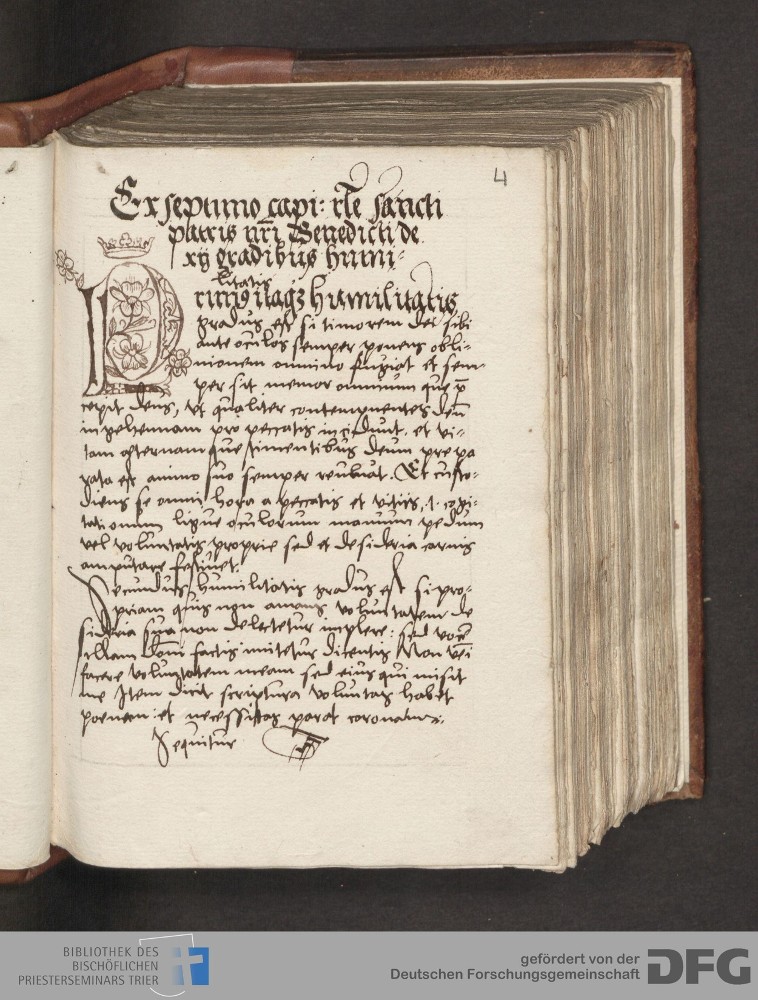 4
Ex septimo capi: rl̅e sancti
patris nr̅i Benedicti de
xij gradibus humi-
litatis
Primꝰ itaqꝫ humilitatis
gradus est si timorem dei sibi
ante oculos semper ponens obli-
uionem omnino fugiat et sem-
per sit memor omnium que p̅
cepit deus, vt qualiter contempnentes deu̅
in gehennam pro peccatis incidunt. et vi-
tam eternam que timentibus deum prepa
rata est animo suo semper reuoluat. Et custo-
diens se omni hora a peccatis et vitijs, i. cogi-
tationum lingue oculorum manuum pedum
vel voluntatis proprie sed et desideria carnis
amputare festinet.
Secundus humilitatis gradus est si pro-
priam quis non amans voluntatem de
sideria sua non delectetur implere: sed voce̅
illam dom̅i factis imitetur dicentis Non veni
facere voluntatem meam sed eius qui misit
me Item dicit scriptura voluntas habet
poenam: et necessitas parat coronam.
Sequitur
BIBLIOTHEK DES
BISCHÖFLICHEN
PRIESTERSEMINARS TRIER
gefördert von der
Deutschen Forschungsgemeinschaft
DFG